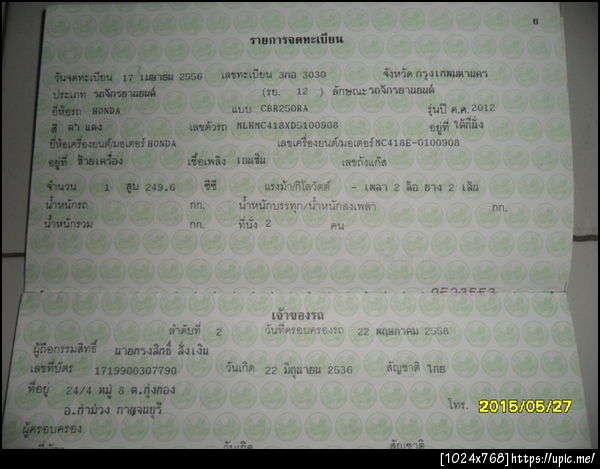 6
รายการจดทะเบียน
วันจดทะเบียน 17 เมษายน 2556 เลขทะเบียน 3กอ 3030 จังหวัด กรุงเทพมหานคร
ประเภท รถจักรยานยนต์ (รย. 12 ) ลักษณะ รถจักรยานยนต์
ยี่ห้อรถ HONDA แบบ CBR250RA รุ่นปี ค.ศ. 2012
สี ดำ แดง เลขตัวรถ MLHMC418XD5100908 อยู่ที่ ใต้ที่นั่ง
ยี่ห้อเครื่องยนต์/มอเตอร์ HONDA เลขเครื่องยนต์/มอเตอร์ MC418E-0100908
อยู่ที่ ซ้ายเครื่อง เชื้อเพลิง เบนซิน เลขถังแก๊ส
จำนวน 1 สูบ 249.6 ซีซี แรงม้า/กิโลวัตต์ - เพลา 2 ล้อ ยาง 2 เส้น
น้ำหนักรถ กก. น้ำหนักบรรทุก/น้ำหนักลงเพลา กก.
น้ำหนักรวม กก. ที่นั่ง 2 คน
เจ้าของรถ
ลำดับที่ 2 วันที่ครอบครองรถ 22 พฤษภาคม 2558
ผู้ถือกรรมสิทธิ์ นายทรงสิทธิ์ สิ่งเงิน
เลขที่บัตร 1719900307790 วันเกิด 22 มิถุนายน 2536 สัญชาติ ไทย
ที่อยู่ 24/4 หมู่ 8 ต.ทุ่งทอง
อ.ท่าม่วง กาญจนบุรี โทร.
ผู้ครอบครอง
วันเกิด สัญชาติ
2015/05/27
[1024x768]https://upic.me/